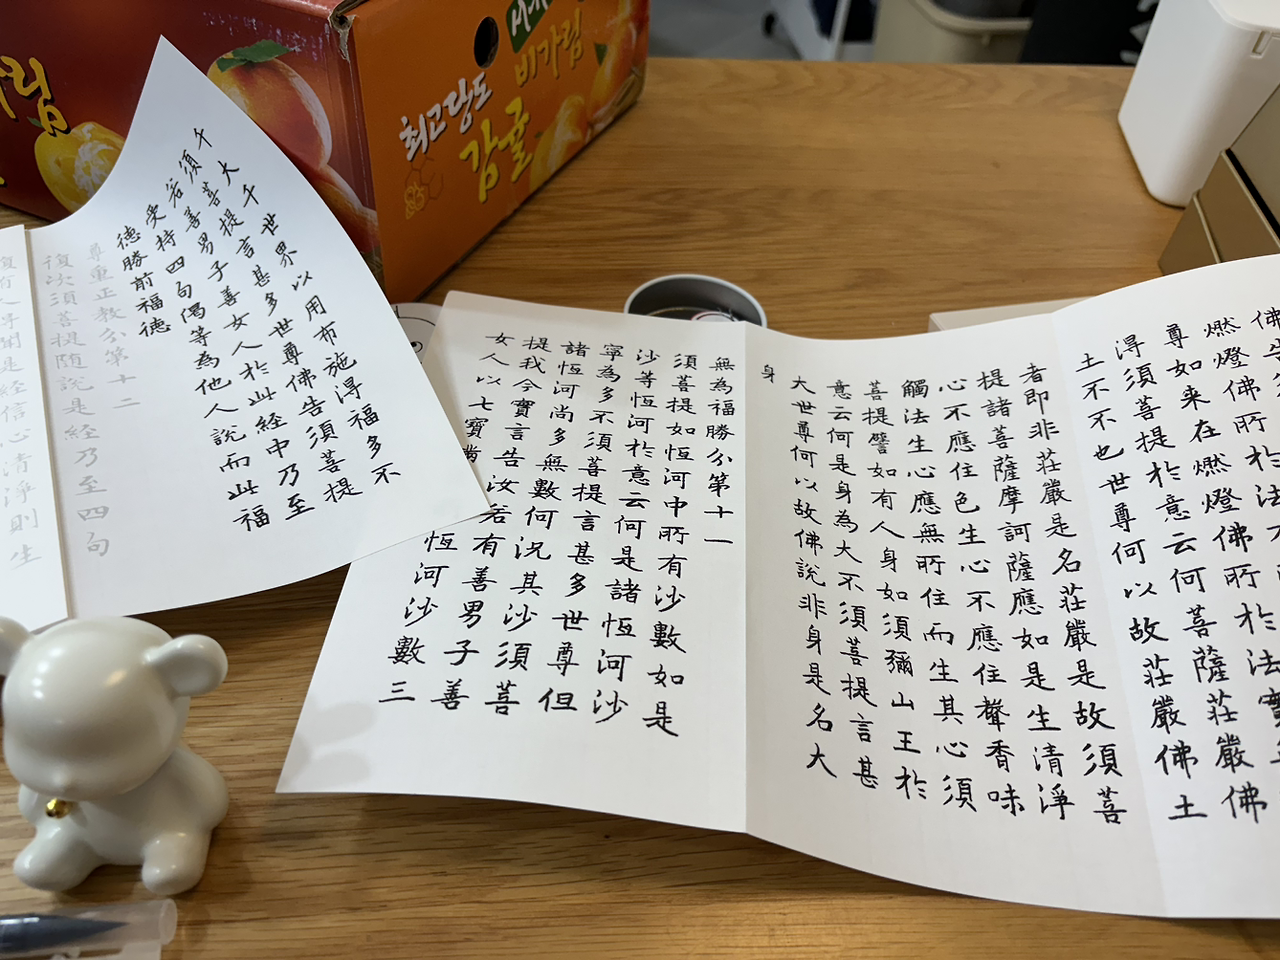 최고당도
비가림
감귤
佛告
燃燈佛所於法不
尊如来在燃燈佛所於法實
得須菩提於意云何菩薩莊嚴佛
土不不也世尊何以故莊嚴佛土
者即非莊嚴是名莊嚴是故須菩
提諸菩薩摩訶薩應如是生清淨
心不應住色生心不應住聲香味
觸法生心應無所住而生其心須
菩提譬如有人身如須彌山王於
意云何是身為大不須菩提言甚
大世尊何以故佛說非身是名大
身
無為福勝分第十一
須菩提如恆河中所有沙數如是
沙等恆河於意云何是諸恆河沙
寧為多不須菩提言甚多世尊但
諸恆河尚多無數何況其沙須菩
提我今實言告汝若有善男子善
女人以七寶恆河沙數三
千大千世界以用布施得福多不
須菩提言甚多世尊佛告須菩提
若善男子善女人於此經中乃至
受持四句偈等為他人說而此福
德勝前福德
尊重正教分第十二
復次須菩提隨說是經乃至四句
復有人得聞是経信心清淨則生